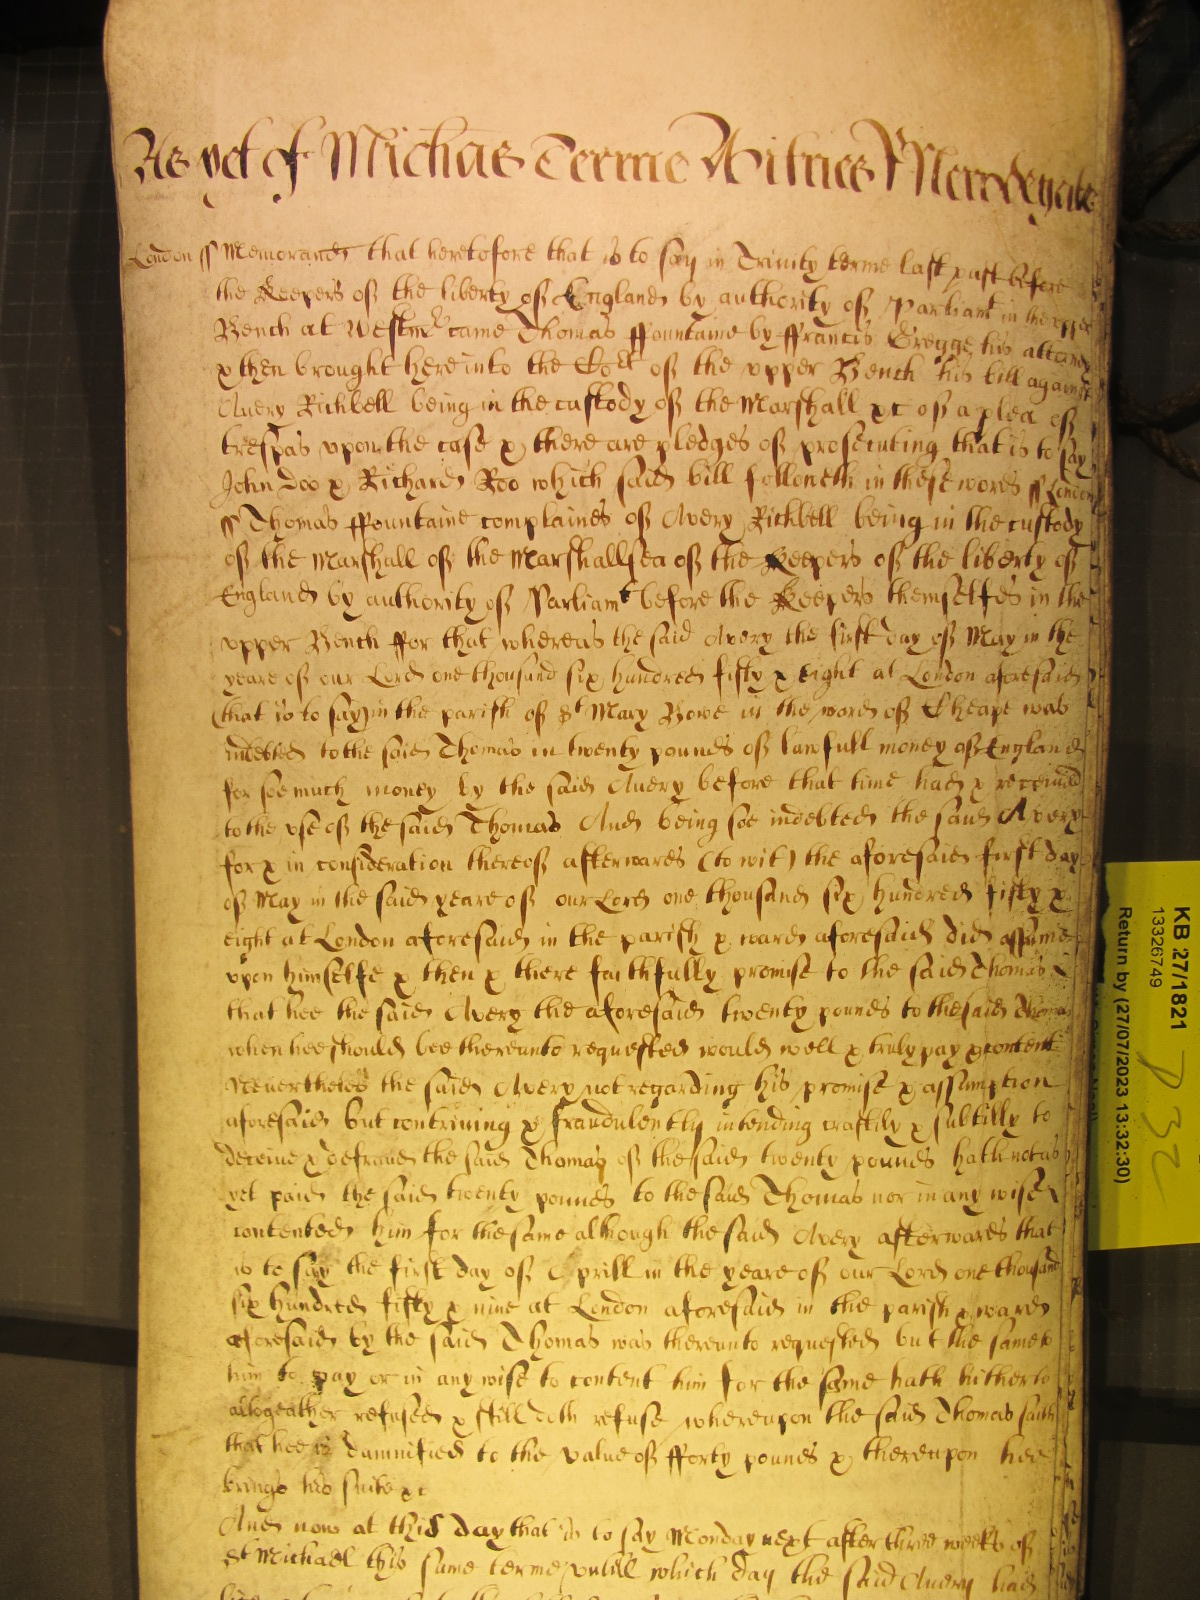 As yet of Michas Terme Witnes P Newdegate
London ss Memorand that heretofore that is to say in Trinity terme last past before
the Keepers of the liberty of England by authority of Parliamt in the upper
Bench at Westmr came Thomas ffountaine by ffrancis Gregge his attorney
& then brought here into the Cort of the upper Bench his bill against
Avery Rickbell being in the custody of the Marshall &c of a plea of
trespas upon the case & there are pledges of prosecuting that is to say
John Doo & Richard Roo which said bill followeth in these words ss London
ss Thomas ffountaine complaines of Avery Rickbell being in the custody
of the Marshall of the Marshallsea of the Keepers of the liberty of
England by authority of Parliamt before the Keepers themselfes in the
upper Bench ffor that whereas the said Avery the first day of May in the
yeare of our Lord one thousand six hundred fifty & eight at London aforesaid
(that is to say) in the parish of St Mary Bowe in the ward of Cheape was
indebted to the said Thomas in twenty pounds of lawfull money of England
for soe much money by the said Avery before that time had & received
to the use of the said Thomas And being soe indebted the said Avery
for & in consideration thereof afterwards (to wit) the aforesaid first day
of May in the said yeare of our Lord one thousand six hundred fifty &
eight at London aforesaid in the parish & ward aforesaid did assume
upon himselfe & then & there faithfully promise to the said Thomas
that hee the said Avery the aforesaid twenty pounds to the said Thomas
when hee should bee thereunto requested would well & truly pay & content
Nevertheles the said Avery not regarding his promise & assumption
aforesaid but contriving & fraudulently intending craftily & subtilly to
deceive & defraud the said Thomas of the said twenty pounds hath not as
yet paid the said twenty pounds to the said Thomas nor in any wise
contented him for the same although the said Avery afterwards that
is to say the first day of Aprill in the yeare of our Lord one thousand
six hundred fifty & nine at London aforesaid in the parish & ward
aforesaid by the said Thomas was thereunto requested but the same to
him to pay or in any wise to content him for the same hath hitherto
altogeather refused & still doth refuse whereupon the said Thomas saith
that hee is damnified to the value of fforty pounds & thereupon hee
brings his suite &c
And now at this day that is to say Monday next after three weeks of
St Michael this same terme untill which day the said Avery had
KB 27/1821
13326749
Return by (27/07/2023 13:32:30)
D32